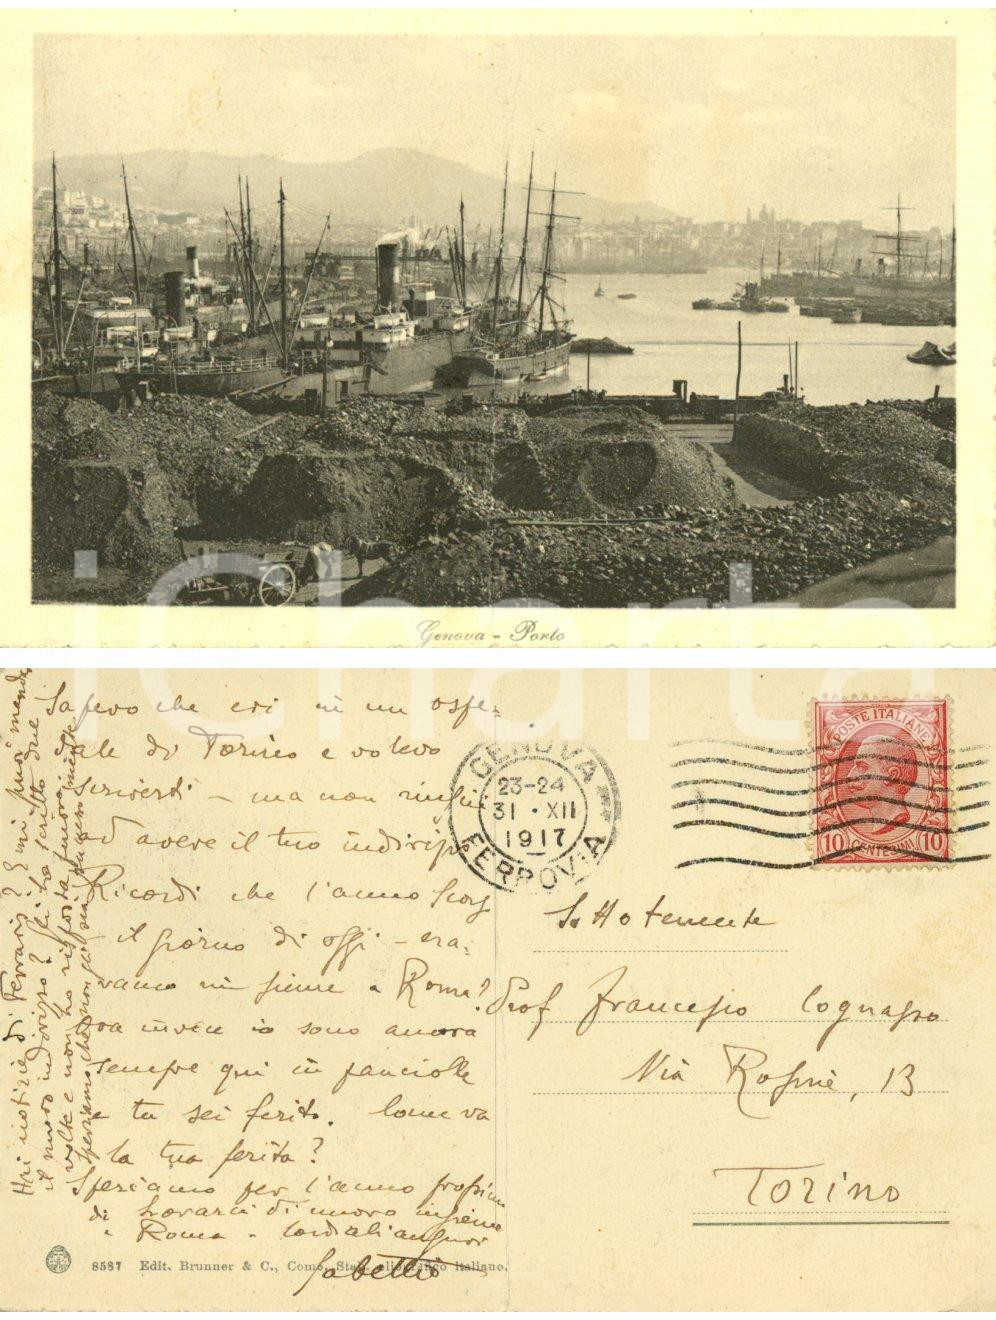 Genova - Porto
iCharta
Sapevo che eri in un ospe=
dale di Torino e volevo
scriverti - ma non riuscii
ad avere il tuo indirizzo
Ricordi che l'anno scorso
il giorno di oggi - era=
vamo insieme a Roma?
Ora invece io sono ancora
sempre qui in panciolle
e tu sei ferito. Come va
la tua ferita?
Speriamo per l'anno prossimo
di trovarci di nuovo insieme
a Roma - Cordiali auguri
Hai notizie di Ferraris? E mi puoi mandare
il nuovo indirizzo? Gli ho scritto due
volte e non ho risposta fuori
Speriamo che non gli sia
GENOVA
23-24
31 · XII
1917
FERROVIA
POSTE ITALIANE
10 CENTESIMI 10
Sottotenente
Prof Francesco Cognasso
Via Rosine, 13
TORINO
8587 Edit. Brunner & C., Como, Stab. eliografico italiano.